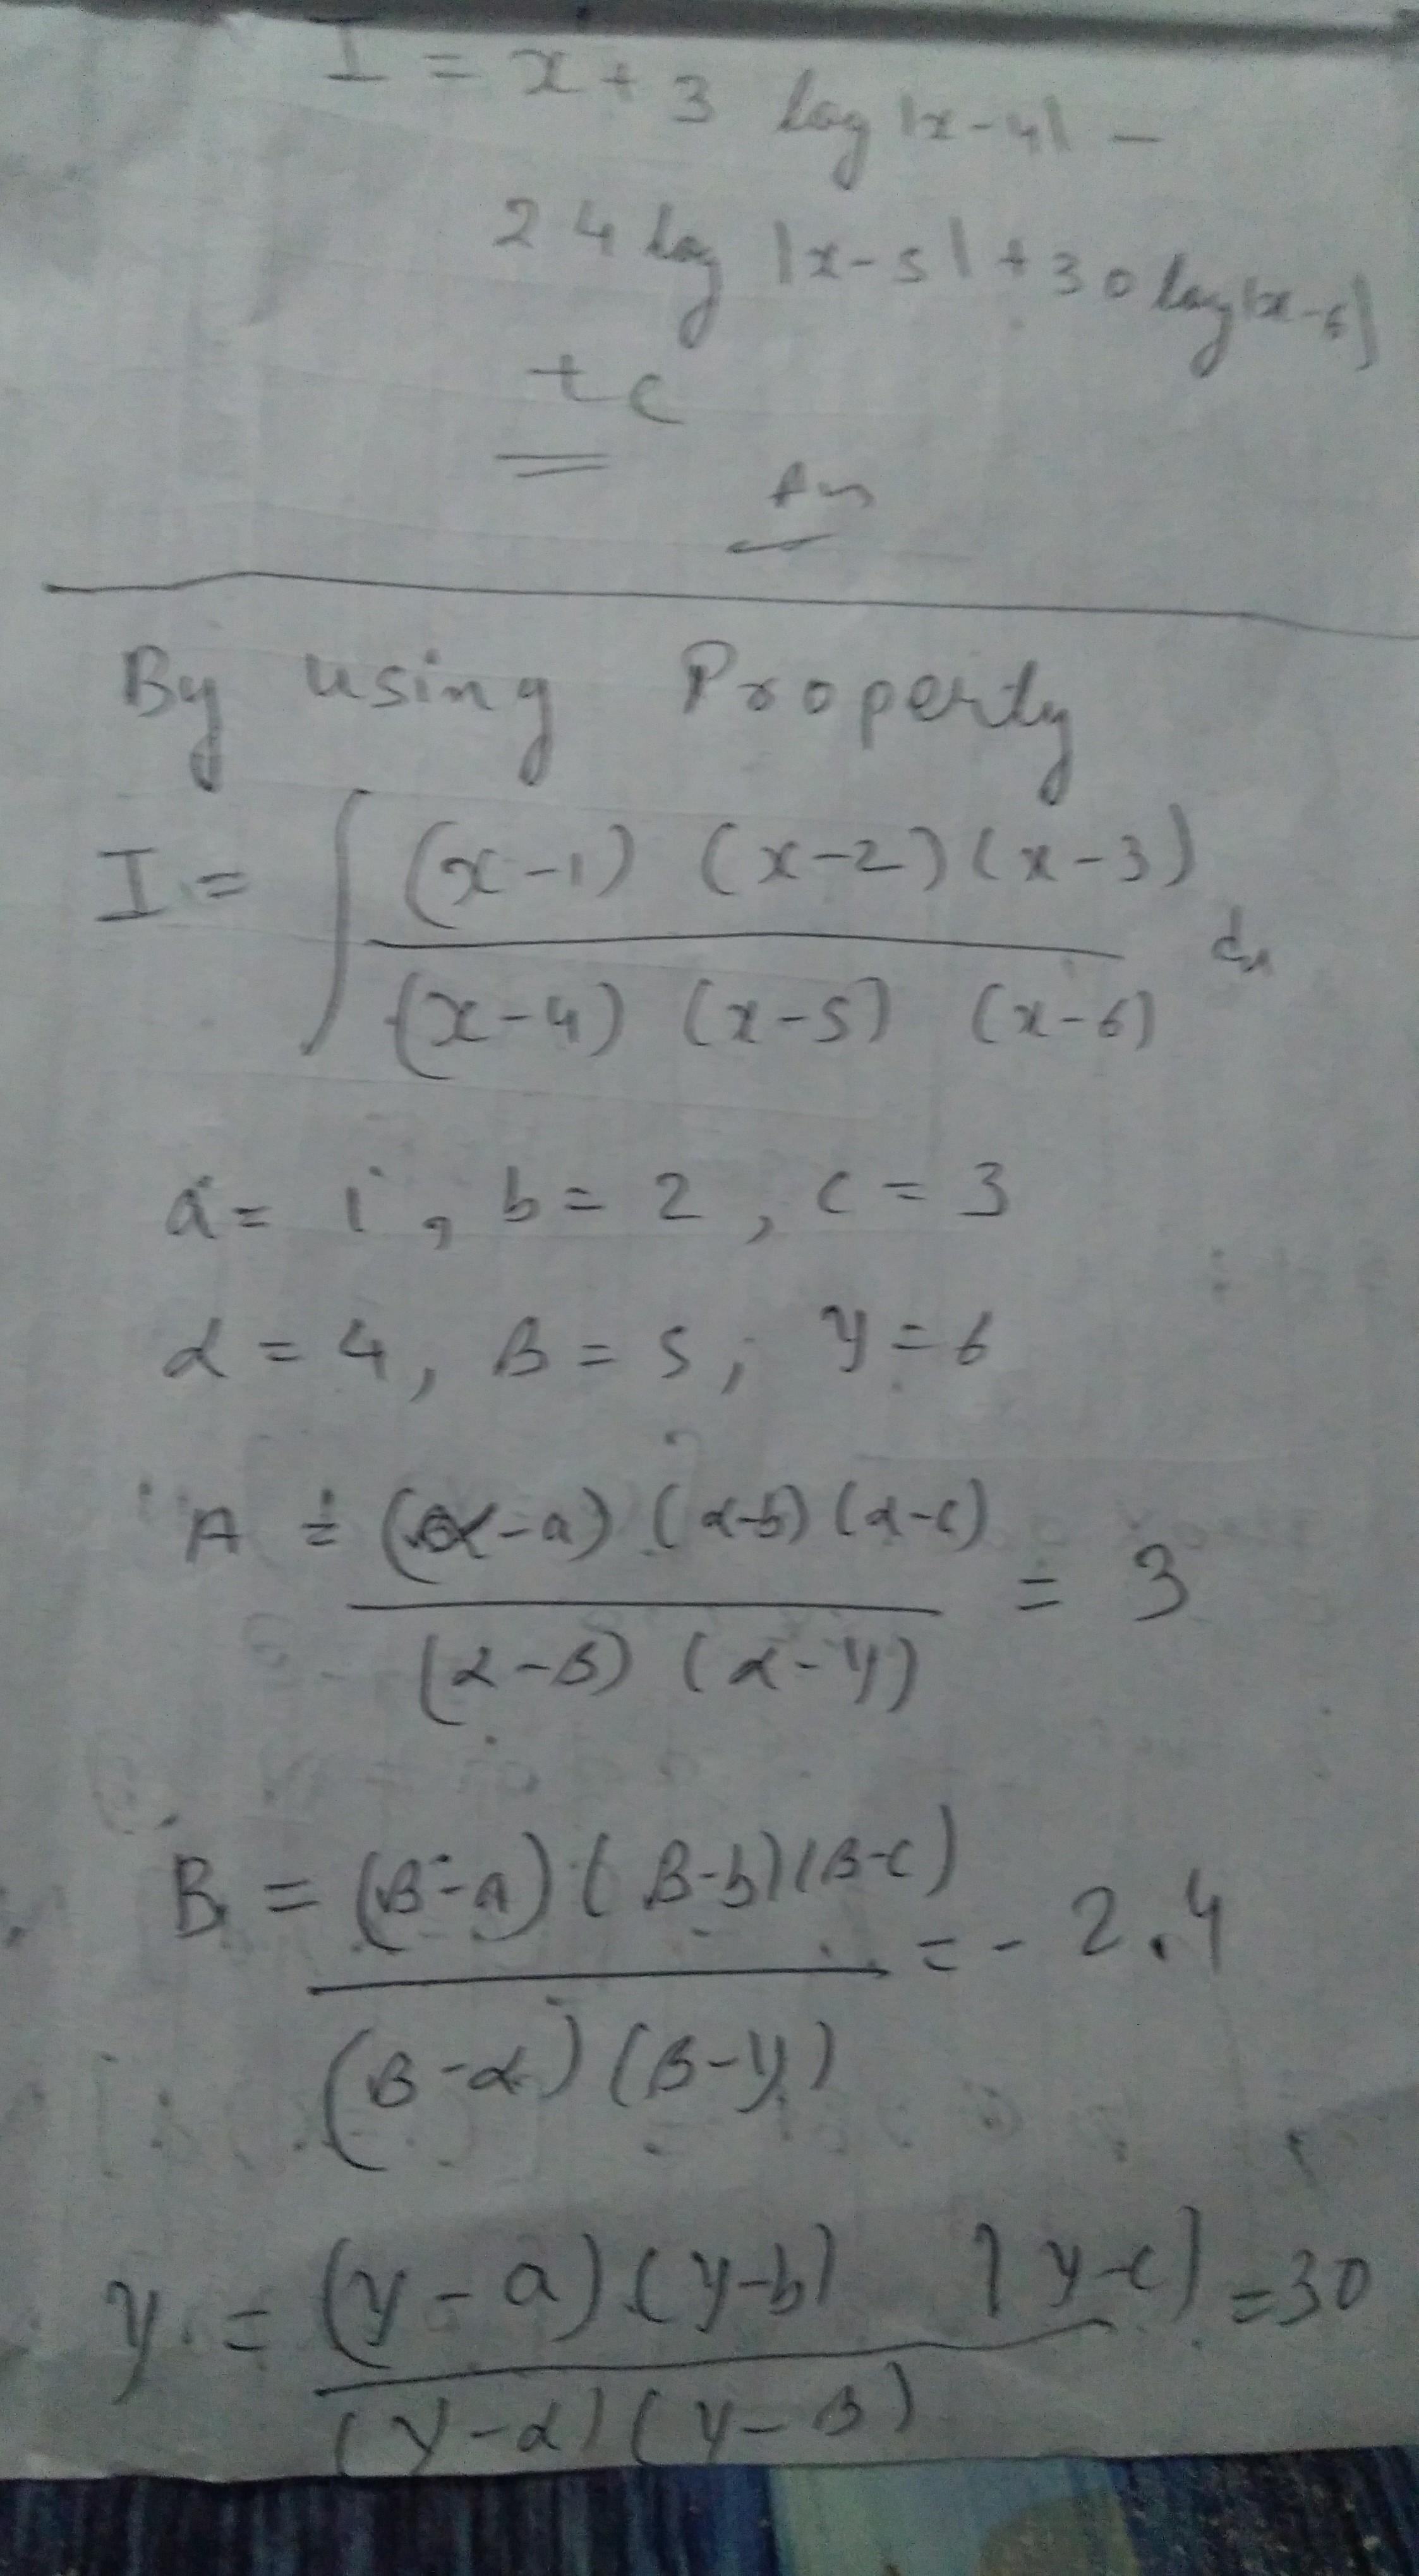 I = x + 3 log |x-4| -
24 log |x-5| + 30 log |x-6|
+ c
Ans
By using Property
I = ∫ (x-1) (x-2) (x-3)
(x-4) (x-5) (x-6) dx
a = 1, b = 2, c = 3
α = 4, β = 5, γ = 6
A = (α-a) (α-b) (α-c)
(α-β) (α-γ) = 3
B = (β-a) (β-b) (β-c)
(β-α) (β-γ) = - 2.4
γ = (γ-a) (γ-b) (γ-c)
(γ-α) (γ-β) = 30